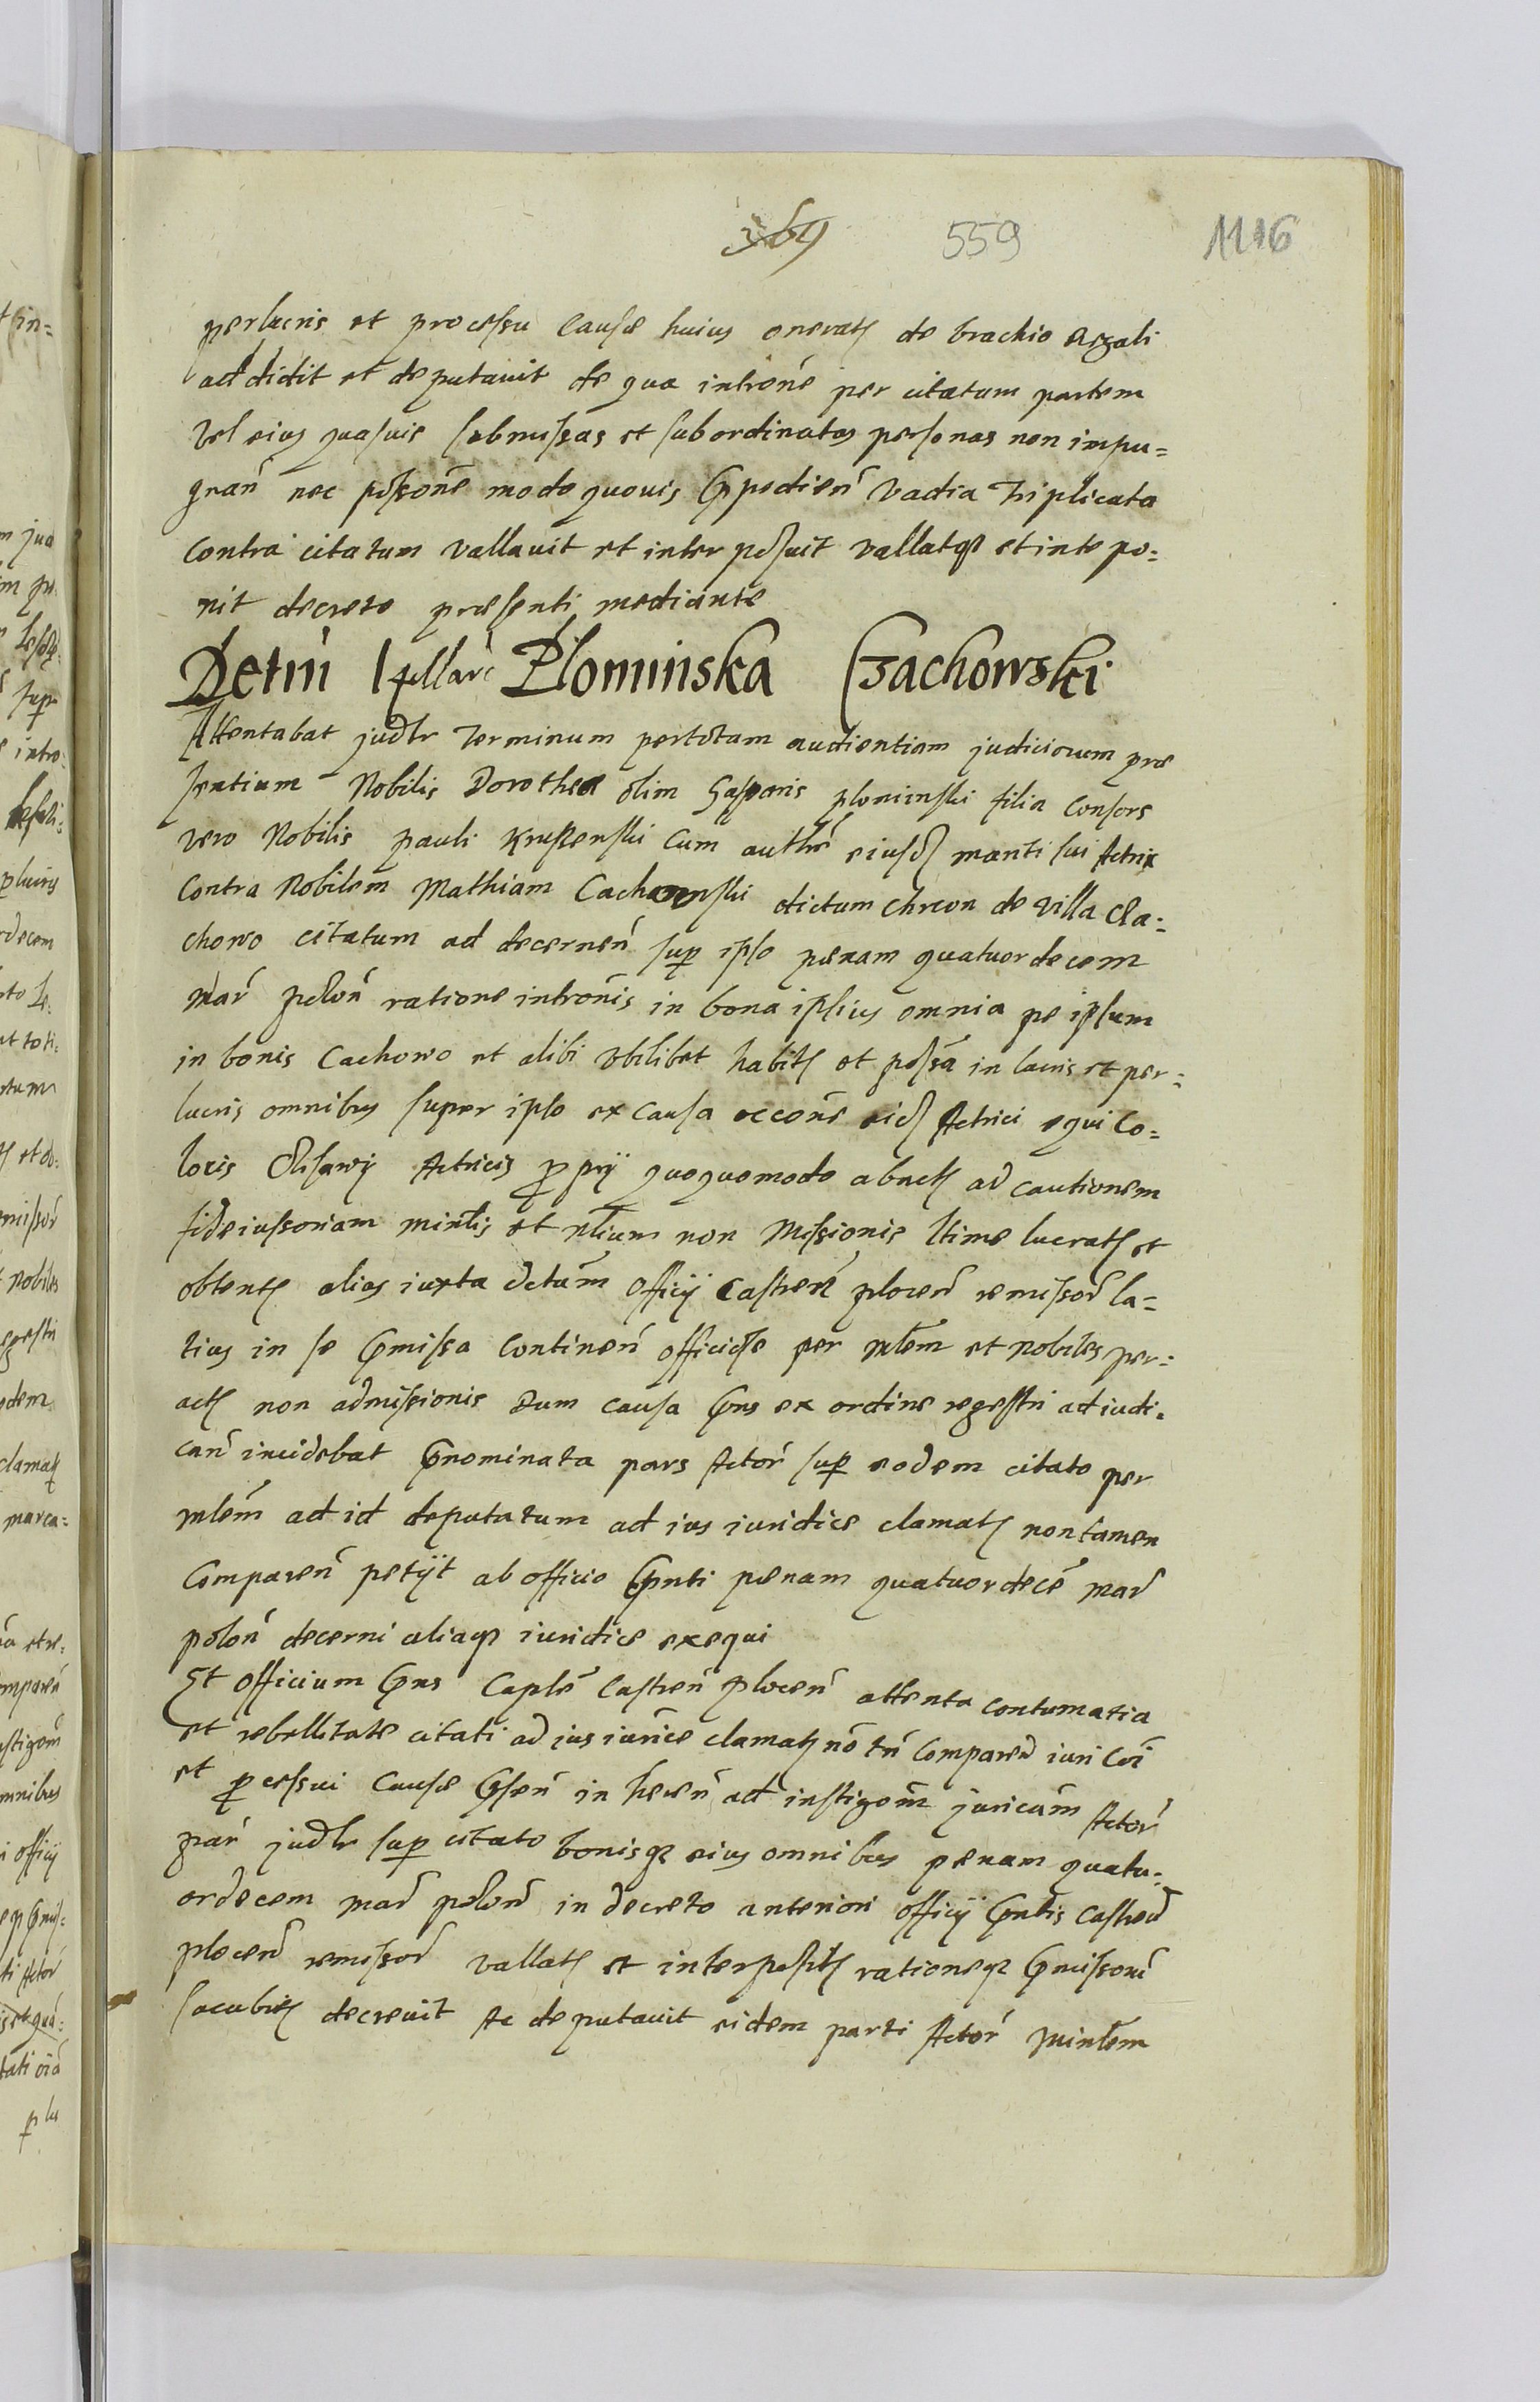 559 1116
perlucris et processu causæ huius oneratz de brachio Regali
addidit et deputauit de qua introne per citatum partem
Vel eius quasuis submissas et subordinatas personas non impu=
gnan nec possone modo quouis Impedien Vadia Triplicata
Contra citatum vallauit et interposuit vallatqz et intepo=
nit decreto præsenti mediante
Detm Plominska Czachowski
Attentabat judlr Terminum pertotam audientiam judiciorum præ
sentium Nobilis Dorothea olim Gasparis plominski filia Consors
vero Nobilis pauli Kruszenski Cum authe eiusd mariti sui Actrix
Contra Nobilem Mathiam Cachowski dictum de villa Cza=
chowo citatum ad decernen sup ipso pænam quatuordecem
Mar polon ratione intronis in bona ipsius omnia pe ipsum
in bonis Cachowo et alibi vbilibet habitz et possa in lucris et per=
lucris omnibus super ipso ex Causa occone eid Actrici equi Co=
loris Actricis ppry quoquomodo abactz ad cautionem
fideiussoriam et non Missionis ltime lucratz et
obtentz alias iuxta dctum Officy Castren plocen remissor la=
tius in se præmissa Continen officiose per mlem et nobiles per=
actz non admissionis Dum causa præns ex ordine regestri ad iudi=
can incidebat prænominata pars Actor sup eodem citato per
mlem ad id deputatum ad ius iuridice clamatz non tamen
Comparen petyt ab officio prænti pænam quatuordece mar
polon decerni aliaqz iuridice exequi
Et Officium præns Caple Castren plocen attenta contumatia
et rebellitate citati ad ius iurice clamatz no tn Comparen iuri Coi
et pcessui Causæ præsen in heren ad instigom juricam Actor
par judlr sup citato bonisqz eius omnibus pænam quatu=
ordecem mar polon in decreto anteriori officy præntis castren
plocen remissor vallatz et interpositz rationeqz præmissom
sucubitz decreuit Ac deputauit eidem parti Actor Minlem